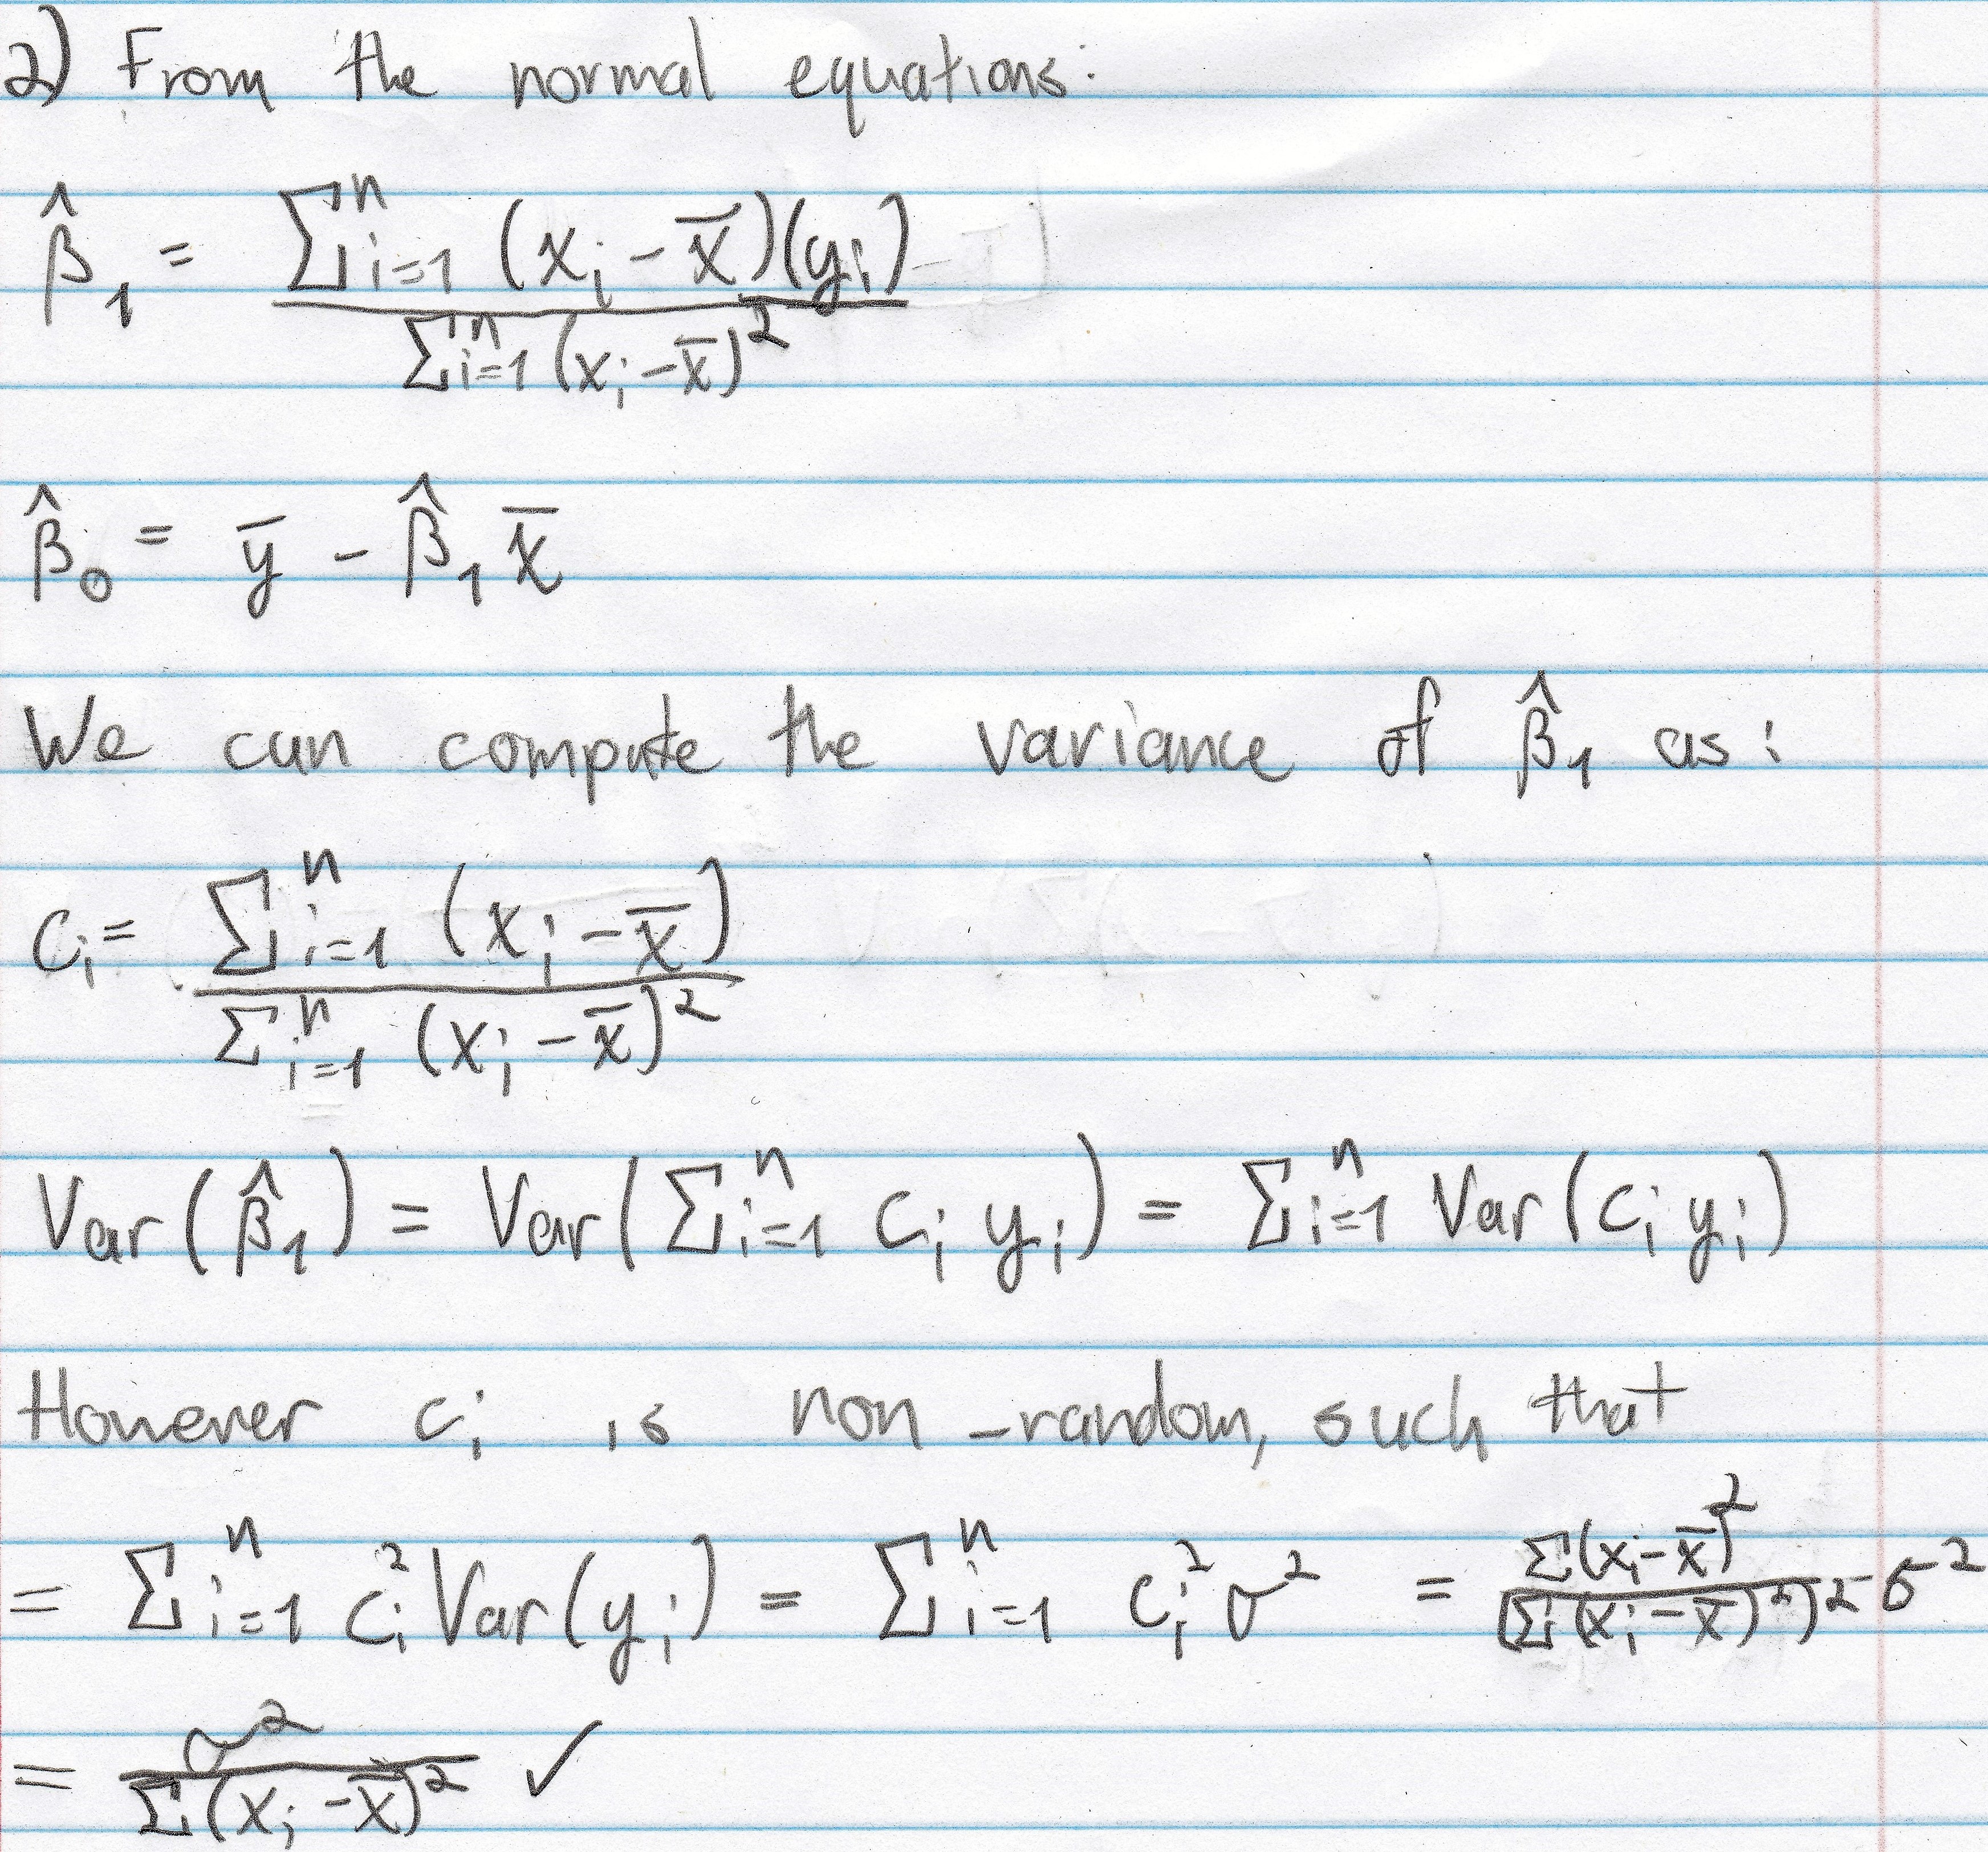 2) From the normal equations:
β̂₁ = Σⁿᵢ₌₁ (xᵢ - x̄)(yᵢ) / Σⁿᵢ₌₁ (xᵢ - x̄)²
β̂₀ = ȳ - β̂₁ x̄
We can compute the variance of β̂₁ as:
cᵢ = Σⁿᵢ₌₁ (xᵢ - x̄) / Σⁿᵢ₌₁ (xᵢ - x̄)²
Var(β̂₁) = Var(Σⁿᵢ₌₁ cᵢ yᵢ) = Σⁿᵢ₌₁ Var(cᵢ yᵢ)
However cᵢ is non-random, such that
= Σⁿᵢ₌₁ cᵢ² Var(yᵢ) = Σⁿᵢ₌₁ cᵢ² σ² = Σ(xᵢ - x̄)² / (Σ(xᵢ - x̄)²)² σ²
= σ² / Σ(xᵢ - x̄)² ✓